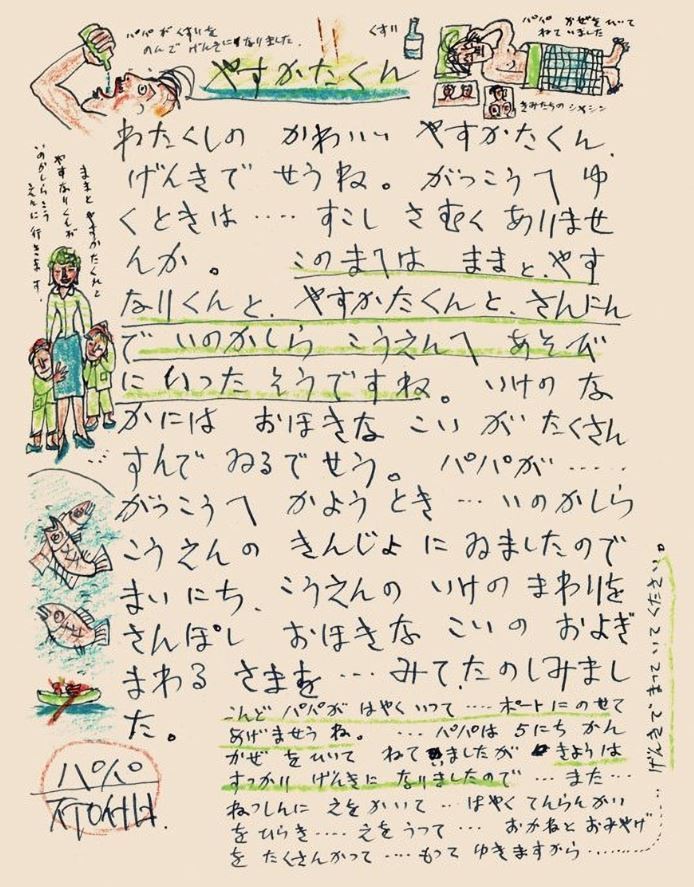 パパがくすりを
のんで げんきになりました.
くすり
パパ かぜをひいて
ねていました
きみたちの シャシン
やすかたくん
ままと やすかたくんと
やすなりくんが
いのかしらこう
えんに 行きます.
わたくしの かわいい やすかたくん.
げんきで せうね。 がっこうへ ゆ
くときは‥‥ すこし さむく ありませ
んか。 このまへは ままと、やす
なりくんと、やすかたくんと、さんにん
で いのかしら こうえんへ あそび
に いった そうですね。 いけの な
かには おほきな こい が たくさん
すんで ゐるでせう。 パパが‥‥‥
がっこうへ かよう とき ‥‥ いのかしら
こうえんの きんじょ に ゐましたので
まいにち、こうえんの いけの まわりを
さんぽし おほきな こいの およぎ
まわる さまを ‥‥ みて、たのしみまし
た。
こんど パパが はやく いって ‥‥ ボートに のせて
あげませう ね。 ‥‥ パパは 5にち かん
かぜ を ひいて ねて ゐましたが きようは
すっかり げんきに なりましたので ‥‥ また‥‥
ねっしんに えを かいて ‥‥ はやく てんらんかい
を ひらき‥‥ えを うって ‥‥ おかねと おみやげ
を たくさん かって ‥‥ もって ゆきますから‥‥‥‥‥
げんきで まっていて ください。
パパ